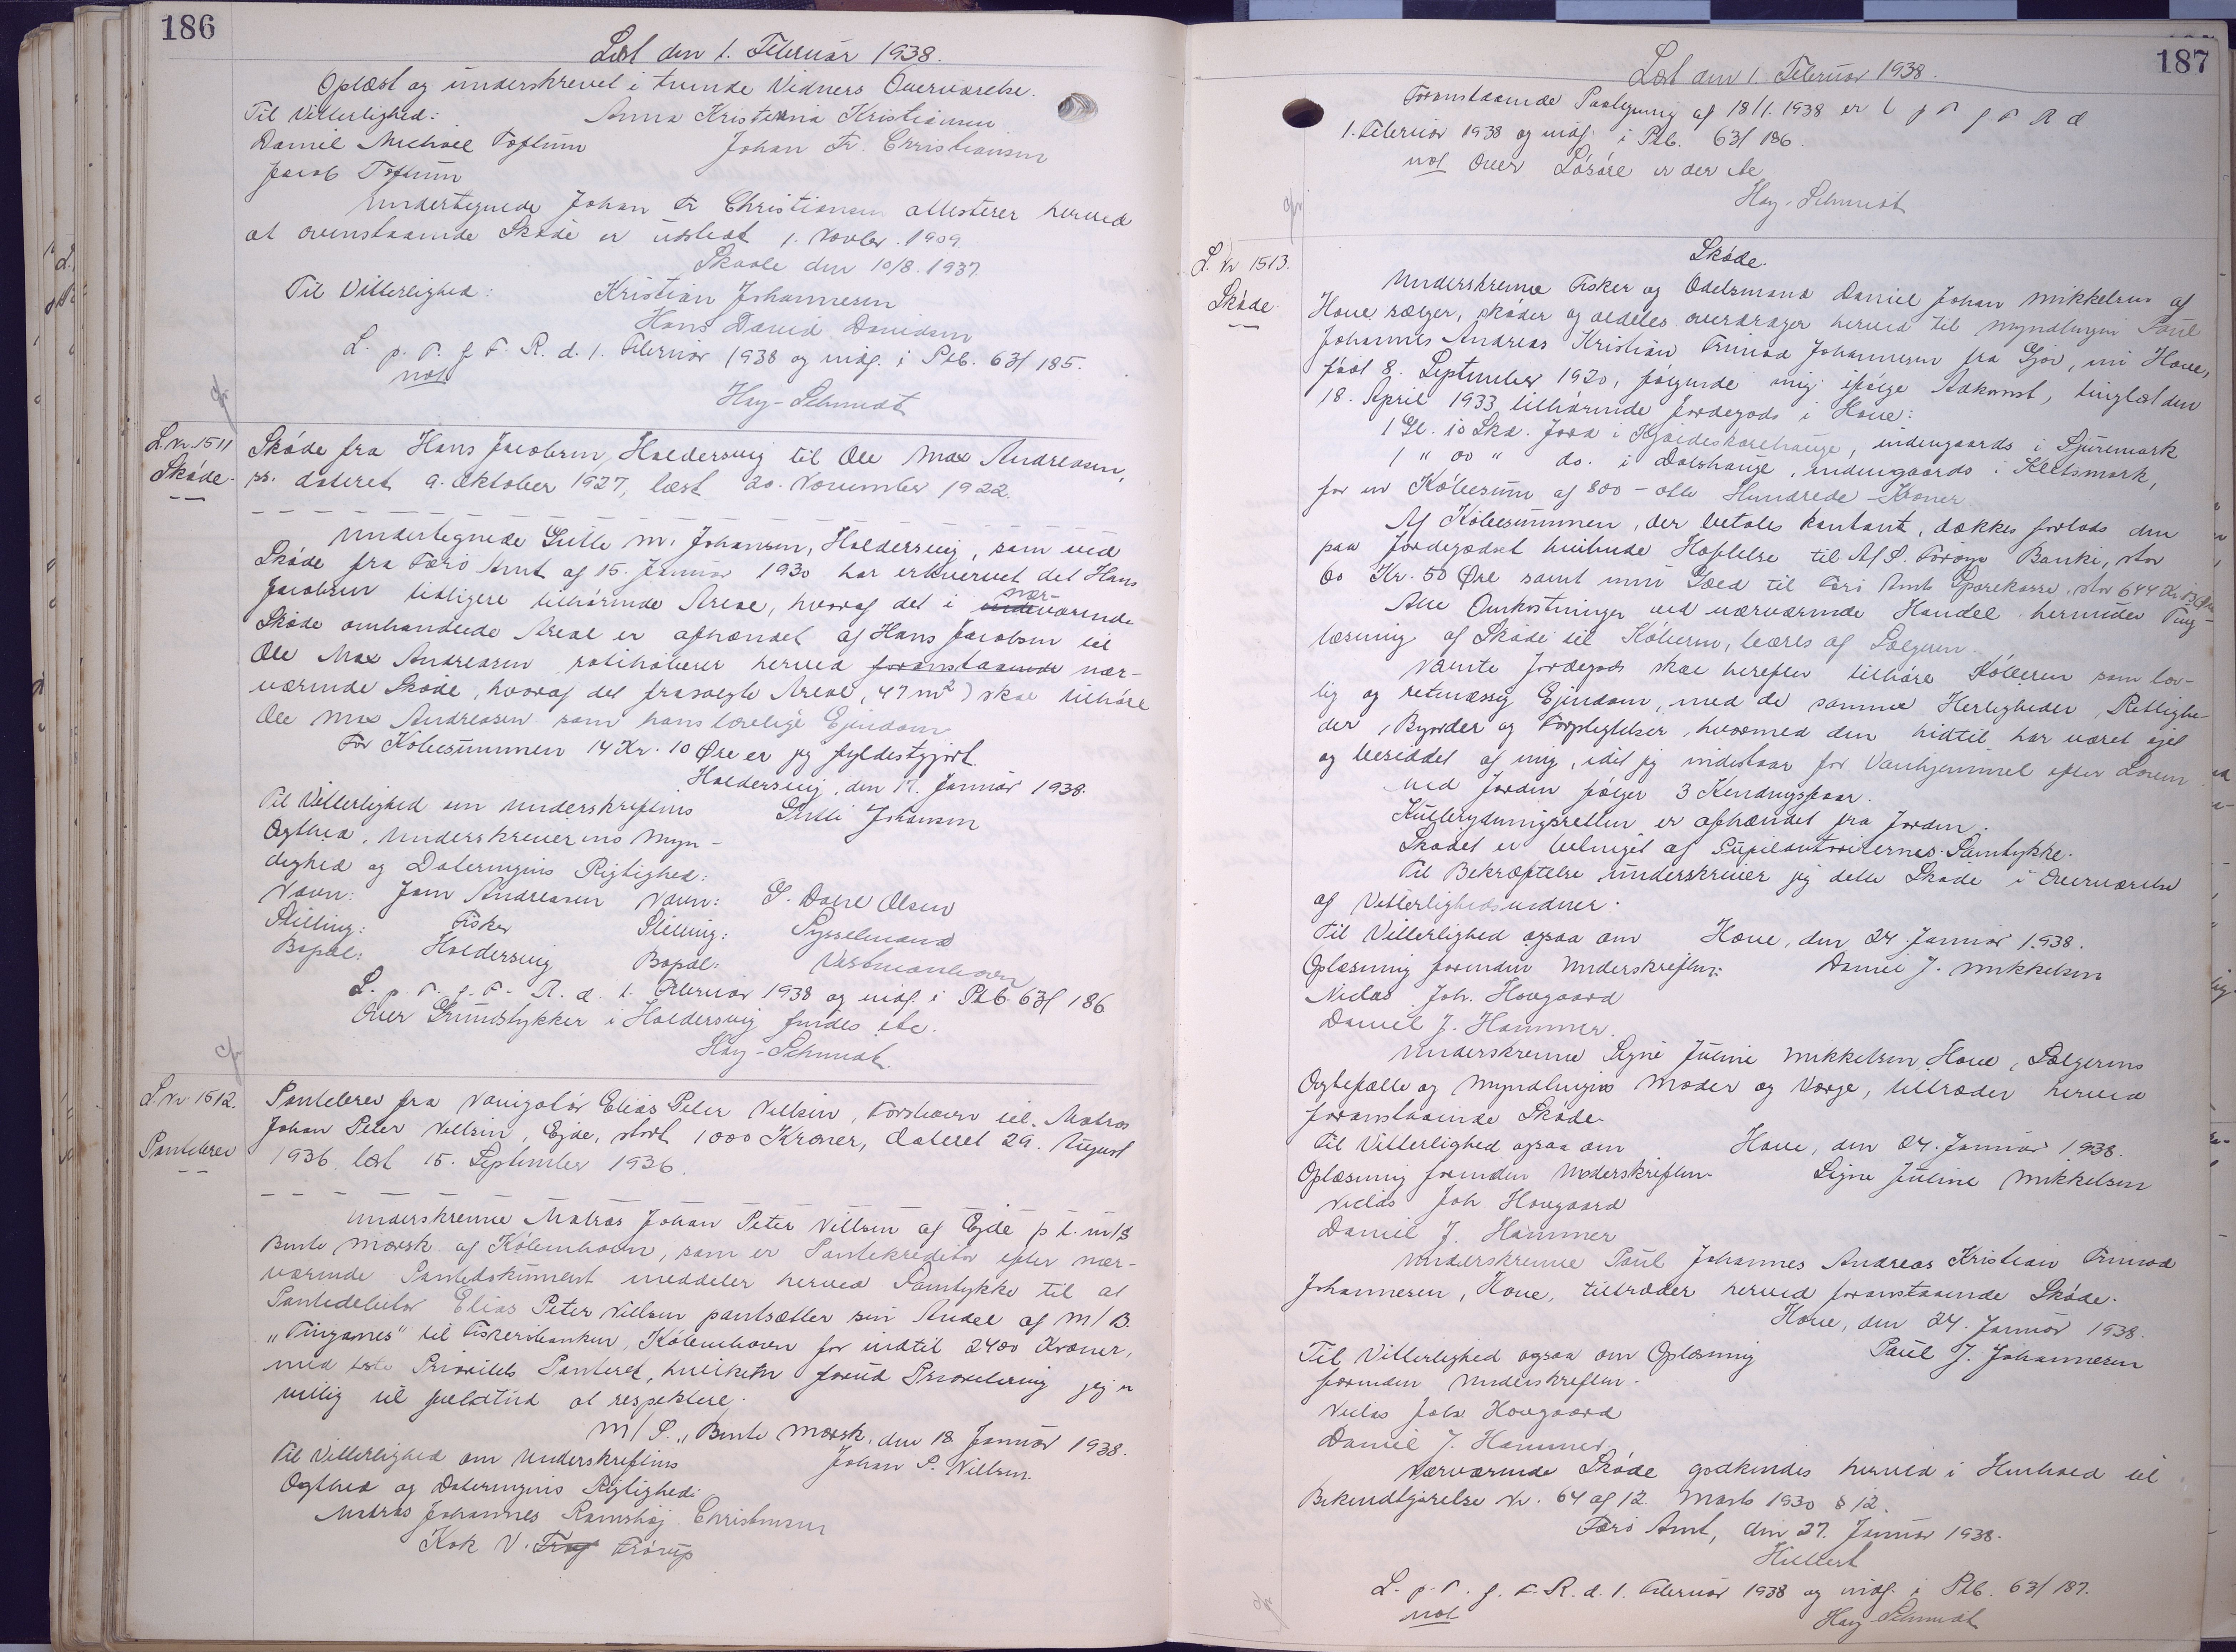 186
Læst den 1. Februar 1938.
Oplæst og underskrevet i tvende Vidners Overværelse.
Til Vitterlighed: Anna Kristenna Kristiansen
Daniel Michael Toftum Johan Fr. Christiansen
Jacob Toftum
Undertegnede Johan Fr Christiansen attesterer herved
at ovenstaaende Skøde er udstedt 1. Novbr. 1909.
Skaale den 10/8. 1937.
Til Vitterlighed: Kristian Johannesen
Hans David Davidsen
L. p. T. f. F. R. d. 1. Februar 1938 og indf. i Ptb. 63/185.
not Hay-Schmidt
L. Nr. 1511
Skøde.
Skøde fra Hans Jacobsen, Haldersvig til Ole Max Andreasen,
ss. dateret 9. Oktober 1927, læst 20. November 1922.
Undertegnede Gutte M. Johansen, Haldersvig, som ved
Skøde fra Færø Amt af 15. Januar 1930 har erhvervet det Hans
Jacobsen tidligere tilhørende Areal, hvoraf det i nærværende
Skøde omhandlede Areal er afhændet af Hans Jacobsen til
Ole Max Andreasen ratihaberer herved foranstaaende nær-
værende Skøde, hvoraf det frasolgte Areal, 47 m²) skal tilhøre
Ole Max Andreasen som hans lovlige Ejendom
For Købesummen 14 Kr. 10 Øre er jeg fyldestgjort.
Haldersvig, den 17. Januar 1938.
Til Vitterlighed om Underskriftens Johansen
Ægthed, Underskriverens Myn-
dighed og Dateringens Rigtighed:
Navn: Andreasen Navn: Olsen
Stilling: Fisker Stilling: Sysselmand
Bopæl: Haldersvig Bopæl: Vestmanhavn
L. p. T. f. F. R. d. 1. Februar 1938 og indf. i Ptb. 63/186
Over Grundstykker i Haldersvig findes ite.
Hay-Schmidt.
L. Nr. 1512.
Pantebrev
Pantebrev fra Navigatør Elias Peter Nielsen, Torshavn til Matros
Johan Peter Nielsen, Ejde, stort 1000 Kroner, dateret 29. August
1936, læst 15. September 1936.
Underskrevne Matros Johan Peter Nielsen af Ejde p t. m/s
Bente Mærsk af København, som er Pantekreditor efter nær-
værende Pantedokument meddeler herved Samtykke til at
Pantedebitor Elias Peter Nielsen pantsætter sin Andel af M/B.
"Tinganes" til Fiskeribanken, København for indtil 2400 Kroner,
med 1ste Prioritets Panteret, hvilken forud Prioritering jeg er
villig til fuldtud at respektere.
M/S. "Bente Mærsk, den 18. Januar 1938.
Til Vitterlighed om Underskriftens Johan P. Nielsen.
Ægthed og Dateringens Rigtighed:
Matros Johannes Ramshøj Christensen
Kok V. Frørup
187
Læst den 1. Februar 1938.
Foranstaaende Paategning af 18/1. 1938 er l p T f F R d
1. Februar 1938 og indf. i Ptb. 63/186.
not Over Løsøre er der ite
Hay-Schmidt
L. Nr 1513.
Skøde
Skøde.
Underskrevne Fisker og Odelsmand Daniel Johan Mikkelsen af
Hove sælger, skøder og aldeles overdrager herved til Myndlingen Poul
Johannes Andreas Kristian Trinod Johannesen fra Gjov, nu Hove,
født 8. September 1920, følgende mig ifølge Adkomst, tinglæst den
18. April 1933 tilhørende Jordegods i Hove:
1 Gl. 10 Skd. Jord i , indengaards i Sjuremark
1 " 00 " do. i Dalshauge, indengaards i Kletsmark,
for en Købesum af 800 - otte Hundrede - Kroner
Af Købesummen, der betales kontant, dækkes forlods den
paa Jordegodset hvilende Hæftelse til A/S. Føroya Banki, stor
60 Kr. 50 Øre samt min Gæld til Færø Amts Sparekasse, stor 644 Kr.
Alle Omkostninger ved nærværende Handel herunder Ting-
læsning af Skøde til Køberen, bæres af Sælgeren.
Nævnte Jordegods skal herefter tilhøre Køberen som lov-
lig og retmæssig Ejendom, med de samme Herligheder, Rettighe-
der, Byrder og Forpligtelser, hvormed den hidtil har været ejet
og besiddet af mig, idet jeg indestaar for Vanhjemmel efter Loven
Med Jorden følger 3 Kendingsfaar.
Kultrydningsretten er afhændet fra Jorden.
Skødet er betinget af Samtykke.
Til Bekræftelse underskriver jeg dette Skøde i Overværelse
af Vitterlighedsvidner.
Til Vitterlighed ogsaa om Hove, den 24. Januar 1938.
Oplæsning forinden Underskriften: Daniel J. Mikkelsen
Niclas Joh. Hovgaard
Daniel J. Hammer.
Underskrevne Signe Juline Mikkelsen, Hove, Sælgerens
Ægtefælle og Myndlingens Moder og Værge, tiltræder herved
foranstaaende Skøde.
Til Vitterlighed ogsaa om Hove, den 24. Januar 1938.
Oplæsning forinden Underskriften. Signe Juline Mikkelsen
Niclas Joh Hovgaard
Daniel J. Hammer
Underskrevne Poul Johannes Andreas Kristian Trinod
Johannesen, Hove, tiltræder herved foranstaaende Skøde.
Hove, den 24. Januar 1938.
Til Vitterlighed ogsaa om Oplæsning Poul J. Johannesen
forinden Underskriften.
Niclas Joh. Hovgaard
Daniel J. Hammer
Nærværende Skøde godkendes herved i Henhold til
Bekendtgørelse Nr. 64 af 12. Marts 1930 § 12.
Færø Amt, den 27. Januar 1938.
Hilbert
L. p. T. f. F. R. d. 1. Februar 1938 og indf. i Ptb. 63/187.
not Hay-Schmidt